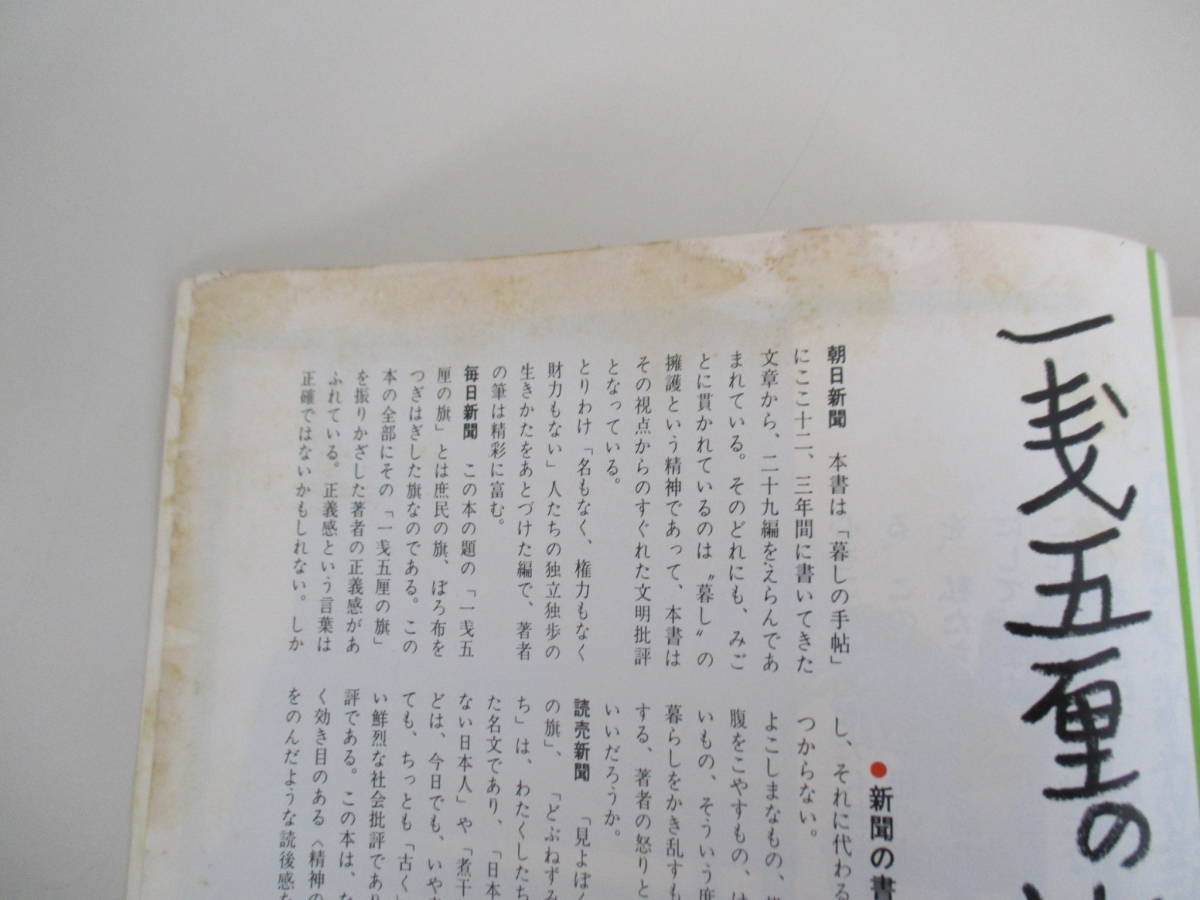 一戔五厘の
●新聞の書
朝日新聞　本書は「暮しの手帖」
にここ十二、三年間に書いてきた
文章から、二十九編をえらんであ
まれている。そのどれにも、みご
とに貫かれているのは〝暮し〟の
擁護という精神であって、本書は
その視点からのすぐれた文明批評
となっている。
とりわけ「名もなく、権力もなく
財力もない」人たちの独立独歩の
生きかたをあとづけた編で、著者
の筆は精彩に富む。
毎日新聞　この本の題の「一戔五
厘の旗」とは庶民の旗、ぼろ布を
つぎはぎした旗なのである。この
本の全部にその「一戔五厘の旗」
を振りかざした著者の正義感があ
ふれている。正義感という言葉は
正確ではないかもしれない。しか
し、それに代わる
つからない。
よこしまなもの、
腹をこやすもの、は
いもの、そういう庶
暮らしをかき乱すも
する、著者の怒りと
いいだろうか。
読売新聞　「見よぼく
の旗」、「どぶねずみ
ち」は、わたくしたち
た名文であり、「日本
ない日本人」や「煮干
どは、今日でも、いや
ても、ちっとも「古く」
い鮮烈な社会批評であり
評である。この本は、な
く効き目のある〈精神の
をのんだような読後感な